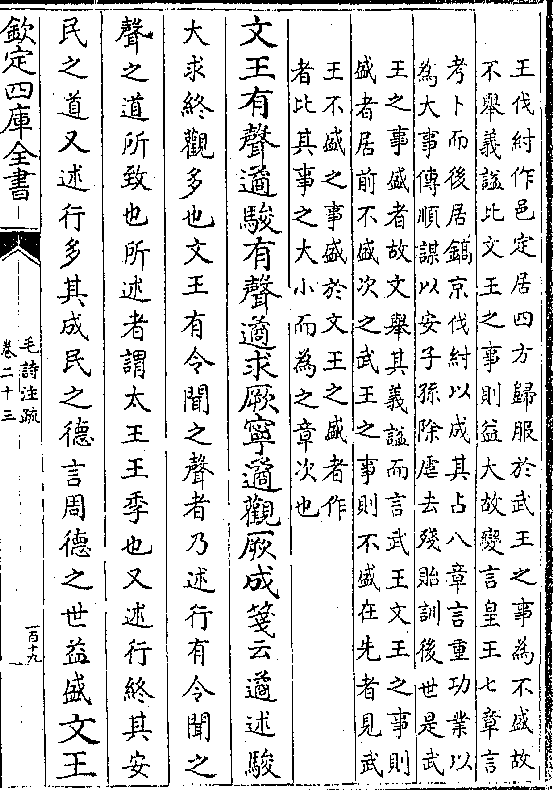 王伐紂作邑定居四方歸服於武王之事為不盛故
不舉義謚比文王之事則益大故變言皇王七章言
考卜而後居鎬京伐紂以成其占八章言重功業以
為大事傳順謀以安子孫除虐去殘貽訓後世是武
王之事盛者故文舉其義謚而言武王文王之事則
盛者居前不盛次之武王之事則不盛在先者見武
王不盛之事盛於文王之盛者作
者比其事之大小而為之章次也
文王有聲遹駿有聲遹求厥寧遹觀厥成箋云遹述駿
大求終觀多也文王有令聞之聲者乃述行有令聞之
聲之道所致也所述者謂太王王季也又述行終其安
民之道又述行多其成民之德言周德之世益盛文王
欽定四庫全書
毛詩注疏
卷二十三
一百十九